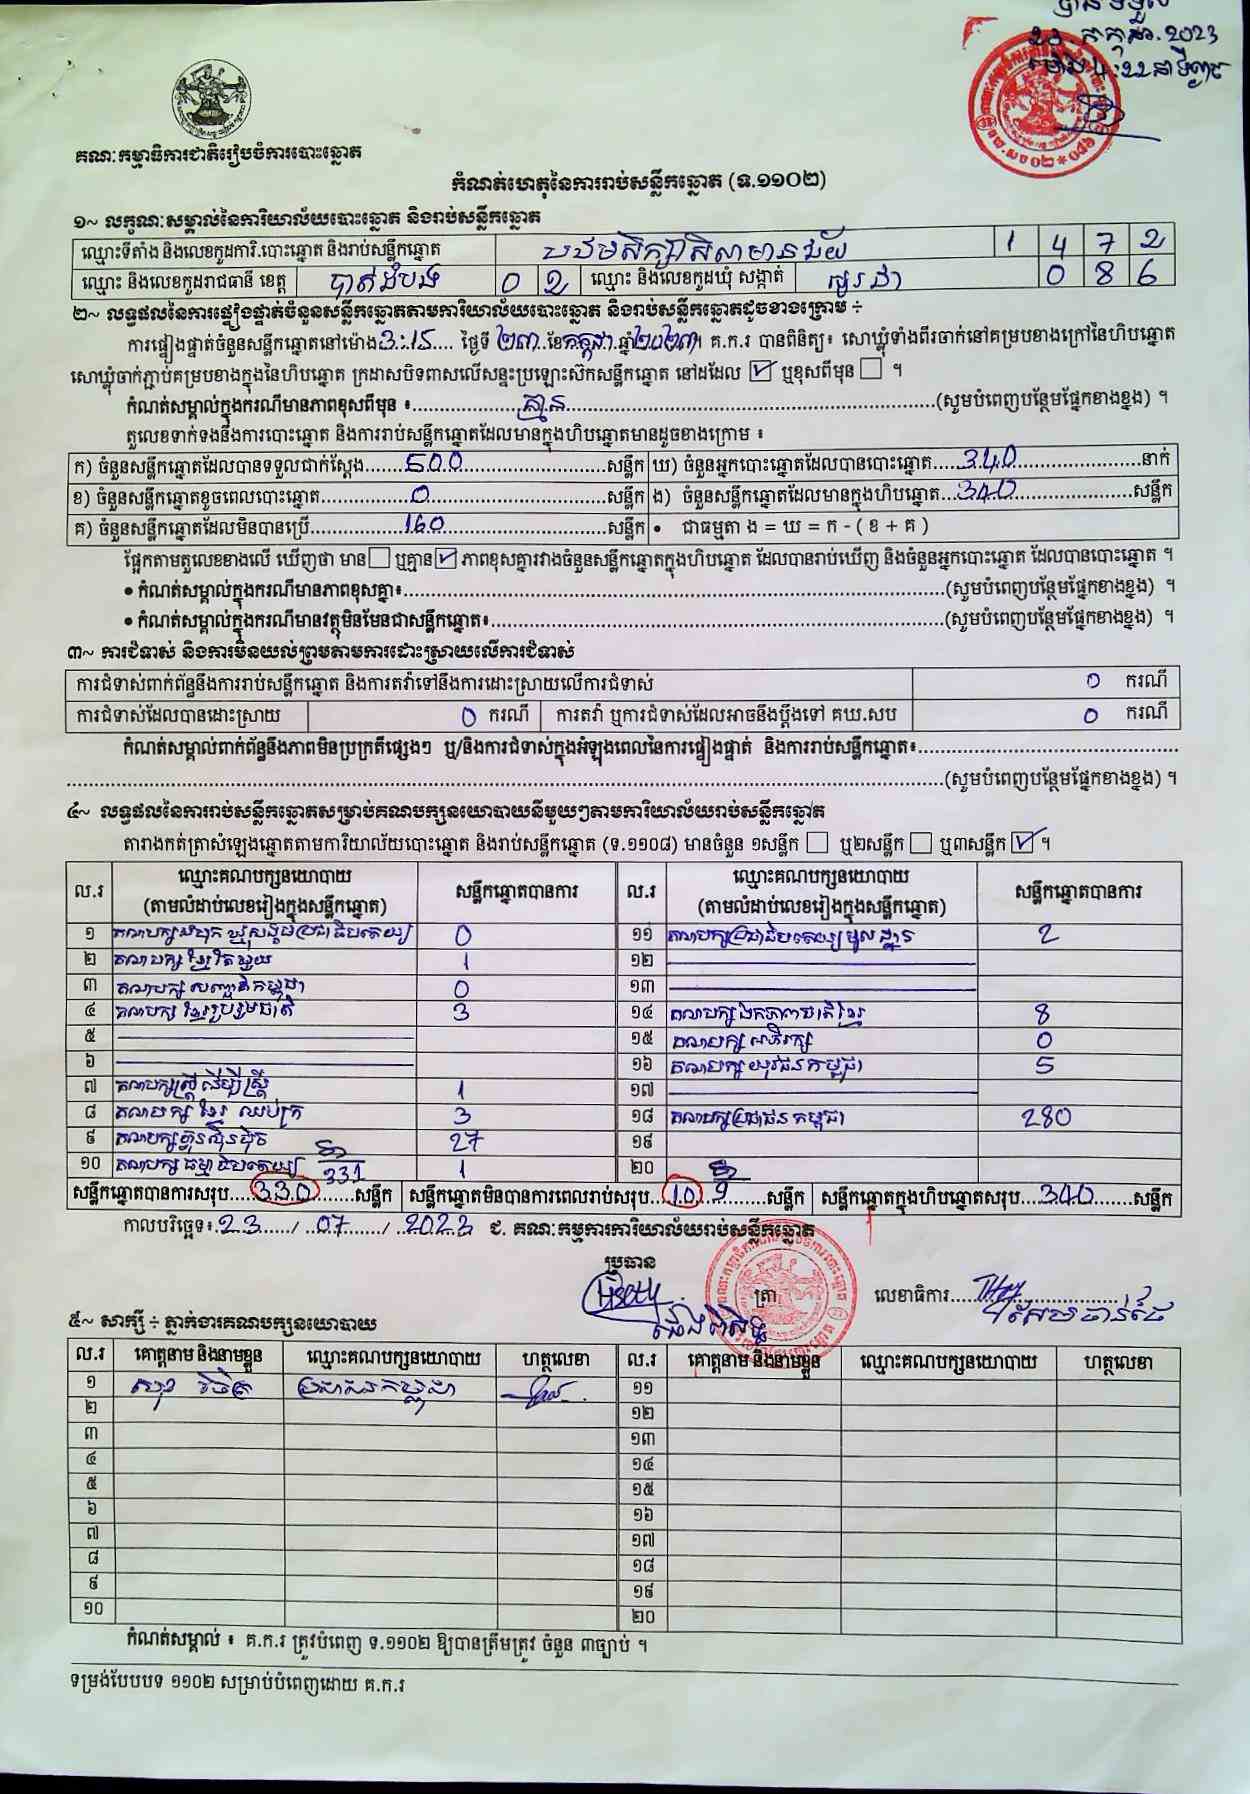 ២៣.កក្កដា.2023
គណៈកម្មាធិការជាតិរៀបចំការបោះឆ្នោត
កំណត់ហេតុនៃការរាប់សន្លឹកឆ្នោត (ទ.១១០២)
១~ លក្ខណៈសម្គាល់នៃការិយាល័យបោះឆ្នោត និងរាប់សន្លឹកឆ្នោត
ឈ្មោះទីតាំង និងលេខកូដការិ.បោះឆ្នោត និងរាប់សន្លឹកឆ្នោត បឋមសិក្សាសិលាមានជ័យ 1 4 7 2
ឈ្មោះ និងលេខកូដរាជធានី ខេត្ត បាត់ដំបង 0 2 ឈ្មោះ និងលេខកូដឃុំ សង្កាត់ 0 8 6
២~ លទ្ធផលនៃការផ្ទៀងផ្ទាត់ចំនួនសន្លឹកឆ្នោតតាមការិយាល័យបោះឆ្នោត និងរាប់សន្លឹកឆ្នោតដូចខាងក្រោម ÷
ការផ្ទៀងផ្ទាត់ចំនួនសន្លឹកឆ្នោតនៅម៉ោង 3:15 ថ្ងៃទី ២៣ ខែ កក្កដា ឆ្នាំ ២០២៣ ។ គ.ក.រ បានពិនិត្យ៖ សោឃ្លុំទាំងពីរចាក់នៅគម្របខាងក្រៅនៃហិបឆ្នោត
សោឃ្លុំចាក់ភ្ជាប់គម្របខាងក្នុងនៃហិបឆ្នោត ក្រដាសបិទពាសលើសន្ទះប្រឡោះស៊កសន្លឹកឆ្នោត នៅដដែល ☑ ឬខុសពីមុន ☐ ។
កំណត់សម្គាល់ក្នុងករណីមានភាពខុសពីមុន ៖ គ្មាន (សូមបំពេញបន្ថែមផ្នែកខាងខ្នង) ។
តួលេខទាក់ទងនឹងការបោះឆ្នោត និងការរាប់សន្លឹកឆ្នោតដែលមានក្នុងហិបឆ្នោតមានដូចខាងក្រោម ៖
ក) ចំនួនសន្លឹកឆ្នោតដែលបានទទួលជាក់ស្តែង 500 សន្លឹក ឃ) ចំនួនអ្នកបោះឆ្នោតដែលបានបោះឆ្នោត 340 នាក់
ខ) ចំនួនសន្លឹកឆ្នោតខូចពេលបោះឆ្នោត 0 សន្លឹក ង) ចំនួនសន្លឹកឆ្នោតដែលមានក្នុងហិបឆ្នោត 340 សន្លឹក
គ) ចំនួនសន្លឹកឆ្នោតដែលមិនបានប្រើ 160 សន្លឹក • ជាធម្មតា ង = ឃ = ក - ( ខ + គ )
ផ្អែកតាមតួលេខខាងលើ ឃើញថា មាន ☐ ឬគ្មាន ☑ ភាពខុសគ្នារវាងចំនួនសន្លឹកឆ្នោតក្នុងហិបឆ្នោត ដែលបានរាប់ឃើញ និងចំនួនអ្នកបោះឆ្នោត ដែលបានបោះឆ្នោត ។
• កំណត់សម្គាល់ក្នុងករណីមានភាពខុសគ្នា៖ (សូមបំពេញបន្ថែមផ្នែកខាងខ្នង) ។
• កំណត់សម្គាល់ក្នុងករណីមានវត្ថុមិនមែនជាសន្លឹកឆ្នោត៖ (សូមបំពេញបន្ថែមផ្នែកខាងខ្នង) ។
៣~ ការជំទាស់ និងការមិនយល់ព្រមតាមការដោះស្រាយលើការជំទាស់
ការជំទាស់ពាក់ព័ន្ធនឹងការរាប់សន្លឹកឆ្នោត និងការតវ៉ាទៅនឹងការដោះស្រាយលើការជំទាស់ 0 ករណី
ការជំទាស់ដែលបានដោះស្រាយ 0 ករណី ការតវ៉ា ឬការជំទាស់ដែលអាចនឹងប្តឹងទៅ គឃ.សប 0 ករណី
កំណត់សម្គាល់ពាក់ព័ន្ធនឹងភាពមិនប្រក្រតីផ្សេងៗ ឬ/និងការជំទាស់ក្នុងអំឡុងពេលនៃការផ្ទៀងផ្ទាត់ និងការរាប់សន្លឹកឆ្នោត៖
(សូមបំពេញបន្ថែមផ្នែកខាងខ្នង) ។
៤~ លទ្ធផលនៃការរាប់សន្លឹកឆ្នោតសម្រាប់គណបក្សនយោបាយនីមួយៗតាមការិយាល័យរាប់សន្លឹកឆ្នោត
តារាងកត់ត្រាសំឡេងឆ្នោតតាមការិយាល័យបោះឆ្នោត និងរាប់សន្លឹកឆ្នោត (ទ.១១០៨) មានចំនួន ១សន្លឹក ☐ ឬ២សន្លឹក ☐ ឬ៣សន្លឹក ☑ ។
ល.រ ឈ្មោះគណបក្សនយោបាយ (តាមលំដាប់លេខរៀងក្នុងសន្លឹកឆ្នោត) សន្លឹកឆ្នោតបានការ ល.រ ឈ្មោះគណបក្សនយោបាយ (តាមលំដាប់លេខរៀងក្នុងសន្លឹកឆ្នោត) សន្លឹកឆ្នោតបានការ
១ គណបក្សសំបុកឃ្មុំសង្គមប្រជាធិបតេយ្យ 0 ១១ គណបក្សប្រជាធិបតេយ្យមូលដ្ឋាន 2
២ គណបក្សខ្មែរតែមួយ 1 ១២
៣ គណបក្សសញ្ជាតិកម្ពុជា 0 ១៣
៤ គណបក្សខ្មែររួបរួមជាតិ 3 ១៤ គណបក្សឯកភាពជាតិខ្មែរ 8
៥ ១៥ គណបក្សអភិរក្ស 0
៦ ១៦ គណបក្សយុវជនកម្ពុជា 5
៧ គណបក្សស្ត្រីដើម្បីស្ត្រី 1 ១៧
៨ គណបក្សខ្មែរឈប់ក្រ 3 ១៨ គណបក្សប្រជាជនកម្ពុជា 280
៩ គណបក្សហ្វ៊ុនស៊ិនប៉ិច 27 ១៩
១០ គណបក្សធម្មាធិបតេយ្យ 1 ២០
331
សន្លឹកឆ្នោតបានការសរុប 330 សន្លឹក សន្លឹកឆ្នោតមិនបានការពេលរាប់សរុប 10 9 សន្លឹក សន្លឹកឆ្នោតក្នុងហិបឆ្នោតសរុប 340 សន្លឹក
កាលបរិច្ឆេទ៖ 23 / 07 / 2023 ជ. គណៈកម្មការការិយាល័យរាប់សន្លឹកឆ្នោត
ប្រធាន
ត្រា លេខាធិការ
៥~ សាក្សី ÷ ភ្នាក់ងារគណបក្សនយោបាយ
ល.រ គោត្តនាម និងនាមខ្លួន ឈ្មោះគណបក្សនយោបាយ ហត្ថលេខា ល.រ គោត្តនាម និងនាមខ្លួន ឈ្មោះគណបក្សនយោបាយ ហត្ថលេខា
១ ប្រជាជនកម្ពុជា ១១
២ ១២
៣ ១៣
៤ ១៤
៥ ១៥
៦ ១៦
៧ ១៧
៨ ១៨
៩ ១៩
១០ ២០
កំណត់សម្គាល់ ៖ គ.ក.រ ត្រូវបំពេញ ទ.១១០២ ឱ្យបានត្រឹមត្រូវ ចំនួន ៣ច្បាប់ ។
ទម្រង់បែបបទ ១១០២ សម្រាប់បំពេញដោយ គ.ក.រ